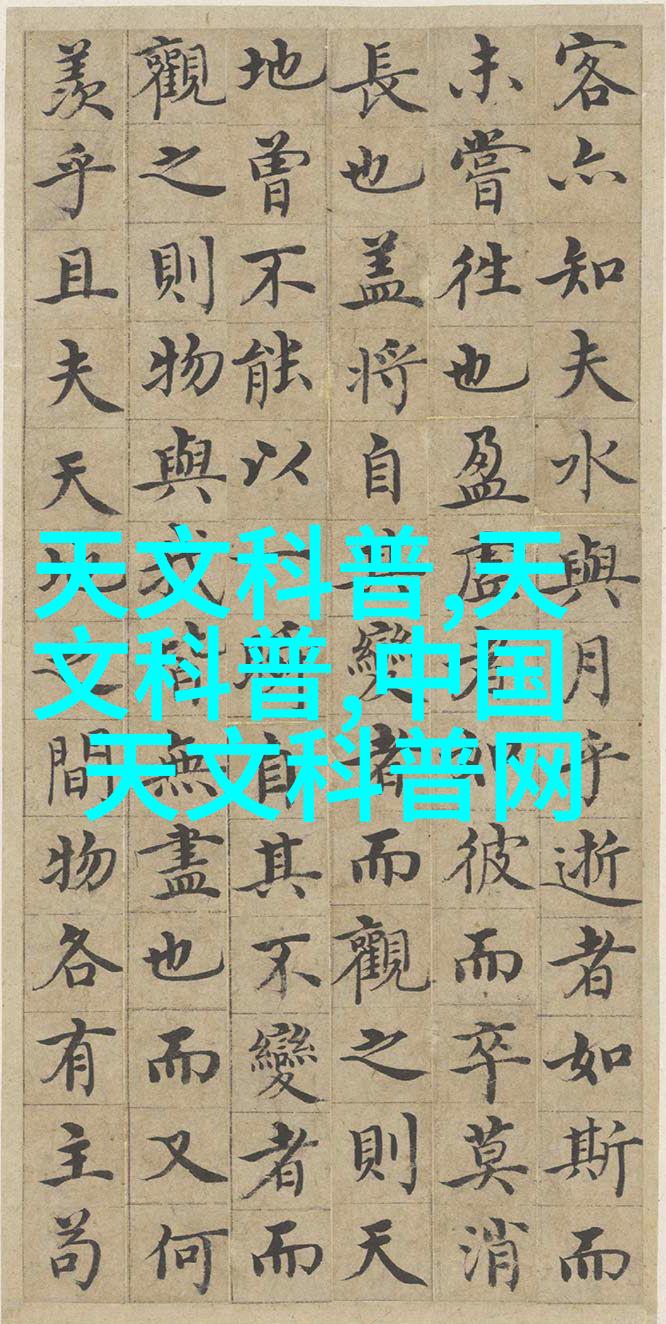 客亦知夫水與月乎逝者如斯而
未嘗往也盈虛者如彼而卒莫消
長也盖將自其變者而觀之則天
地曾不能以一瞬自其不變者而
觀之則物與我皆無盡也而又何
羨乎且夫天地之間物各有主苟
天文科普,天
文科普,中国
天文科普网